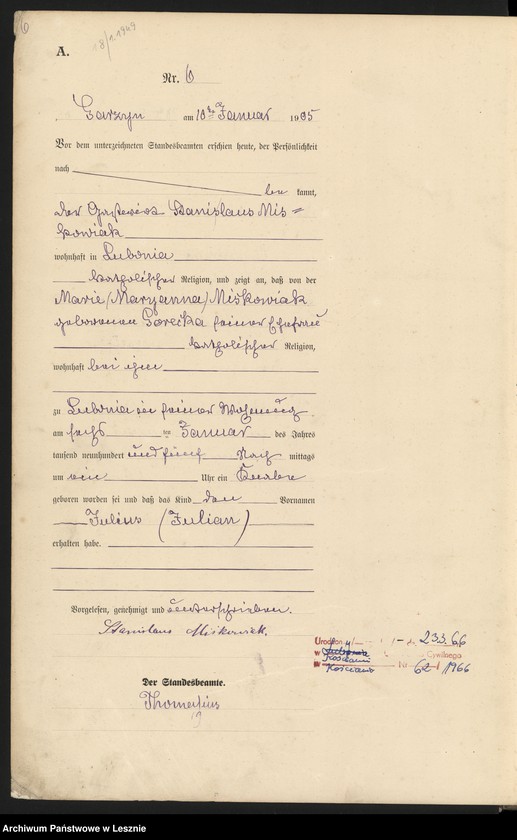 6
8/1.1949
A.
Nr. 6
Garzyn am 10ten Januar 1905
Vor dem unterzeichneten Standesbeamten erschien heute, der Persönlichkeit
nach
be kannt,
der Gastwirt Stanislaus Mis=
kowiak
wohnhaft in Lubonia
katholischer Religion, und zeigt an, daß von der
Marie (Maryanna) Miskowiak
geborenen Gorecka seiner Ehefrau
katholischer Religion,
wohnhaft bei ihm
zu Lubonia in seiner Wohnung
am sechs ten Januar des Jahres
tausend neunhundert und fünf Nach mittags
um ein Uhr ein Knabe
geboren worden sei und daß das Kind den Vornamen
Julius (Julian)
erhalten habe.
Vorgelesen, genehmigt und unterschrieben.
Stanislaus Miskowiak.
23 3. 66
w Cywilnego
Kościanie
w Kościanie Nr 62 / 1966
Der Standesbeamte.
19
Archiwum Państwowe w Lesznie